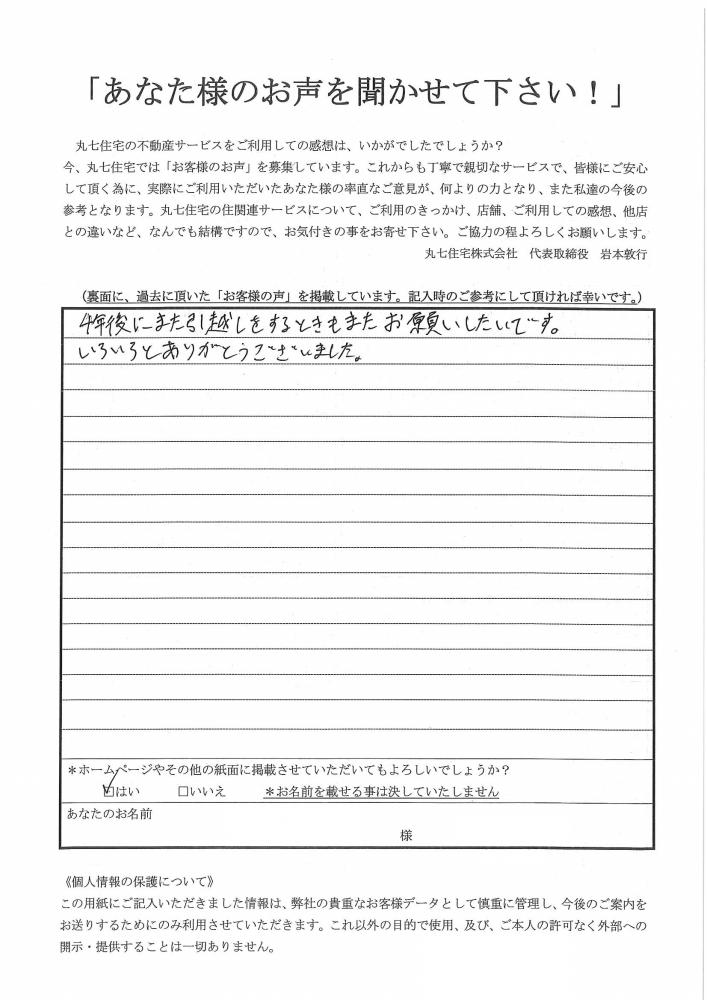 「あなた様のお声を聞かせて下さい！」
丸七住宅の不動産サービスをご利用しての感想は、いかがでしたでしょうか？
今、丸七住宅では「お客様のお声」を募集しています。これからも丁寧で親切なサービスで、皆様にご安心
して頂く為に、実際にご利用いただいたあなた様の率直なご意見が、何よりの力となり、また私達の今後の
参考となります。丸七住宅の住関連サービスについて、ご利用のきっかけ、店舗、ご利用しての感想、他店
との違いなど、なんでも結構ですので、お気付きの事をお寄せ下さい。ご協力の程よろしくお願いします。
丸七住宅株式会社　代表取締役　岩本敦行
（裏面に、過去に頂いた「お客様の声」を掲載しています。記入時のご参考にして頂ければ幸いです。）
4年後にまた引越しをするときもまたお願いしたいです。
いろいろとありがとうございました。
＊ホームページやその他の紙面に掲載させていただいてもよろしいでしょうか？
☑はい　□いいえ　＊お名前を載せる事は決していたしません
あなたのお名前
様
《個人情報の保護について》
この用紙にご記入いただきました情報は、弊社の貴重なお客様データとして慎重に管理し、今後のご案内を
お送りするためにのみ利用させていただきます。これ以外の目的で使用、及び、ご本人の許可なく外部への
開示・提供することは一切ありません。